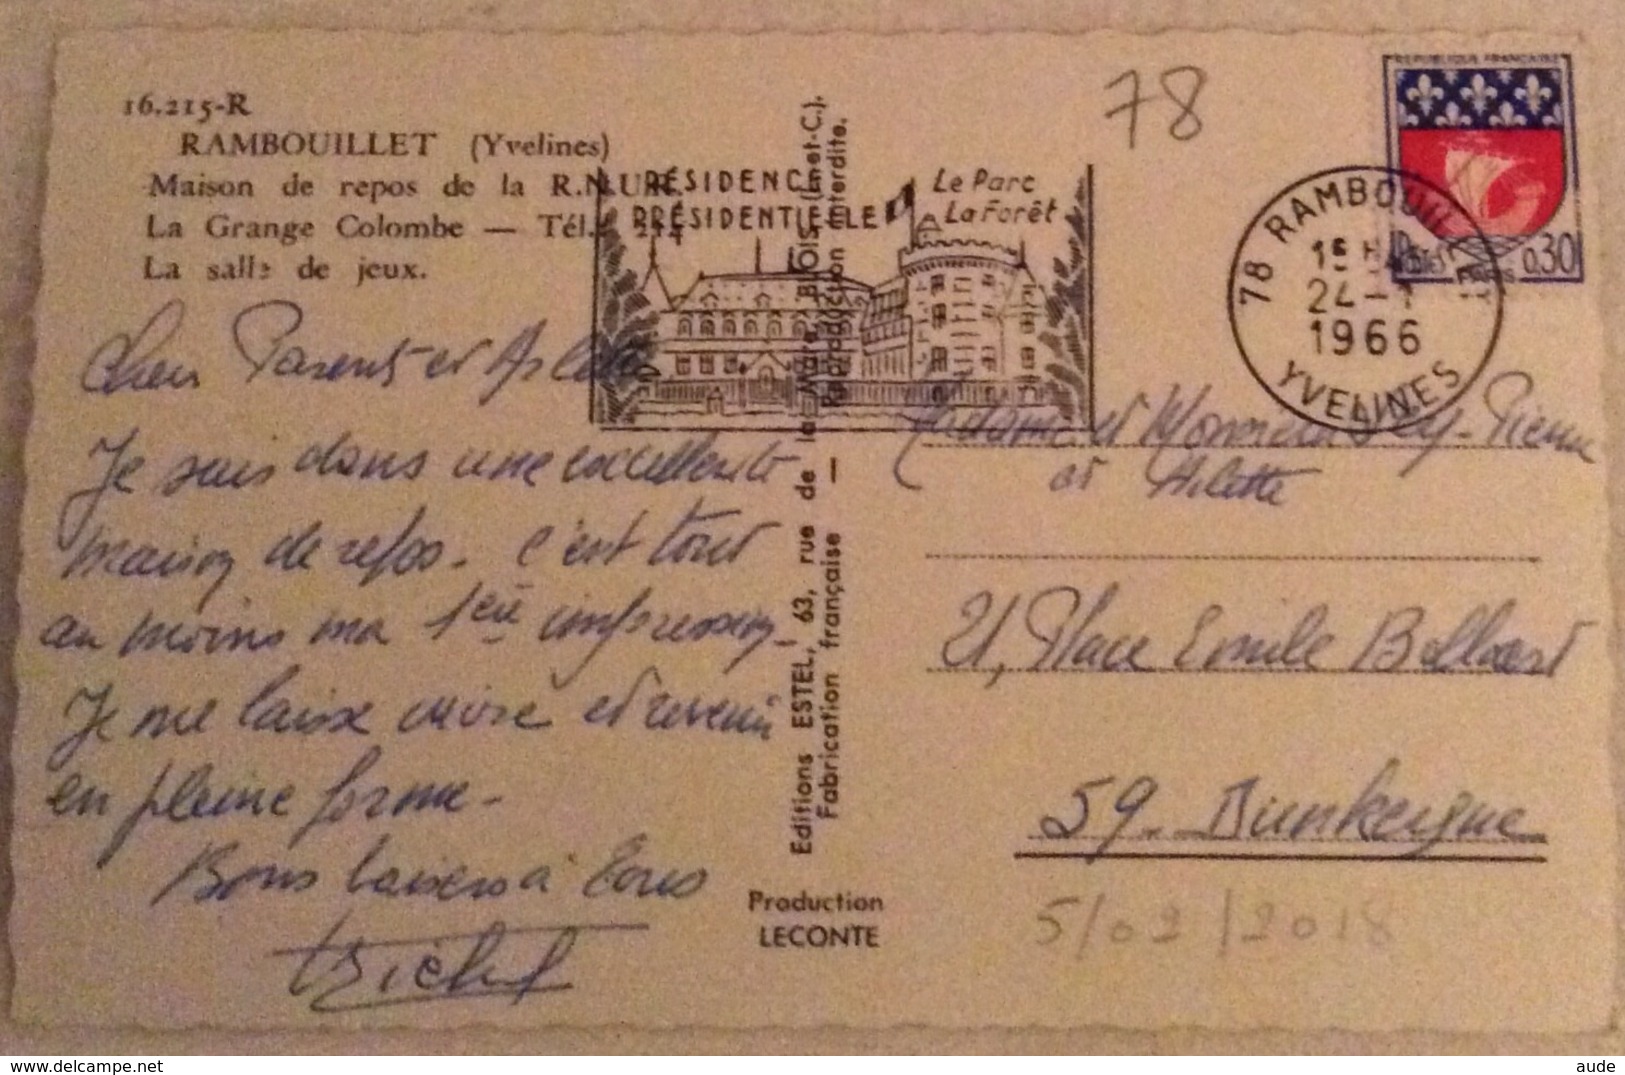 16.215-R
RAMBOUILLET (Yvelines)
Maison de repos de la R.N.U.R.
La Grange Colombe — Tél. 214
La salle de jeux.
Chers Parents et Arlette
Je suis dans une excellente
maison de repos - c'est tout
au moins ma 1ère impression -
Je me laisse vivre et revenir
en pleine forme -
Bons baisers à tous
Michel
RÉSIDENCE
PRÉSIDENTIELLE
Le Parc
La Forêt
Editions ESTEL, 63, rue de la Mare, BLOIS (L.-et-C.).
Fabrication française — Reproduction interdite.
Production
LECONTE
78
REPUBLIQUE FRANÇAISE
Postes Paris 0,30
78 RAMBOUILLET
15 H
24-1
1966
YVELINES
Madame et Monsieur Pierre
et Arlette
21, Place Emile Bollaert
59 - Dunkerque
5/02/2018
https://www.delcampe.net
aude